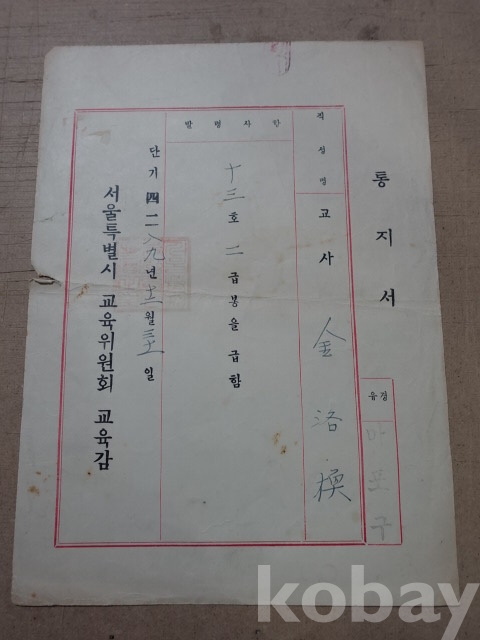 통지서
경유
마포구
직성명
교사 金洛換
발령사항
十三호 二급봉을 급함
단기 四二八九년 十二월 三十一일
서울특별시 교육위원회 교육감
kobay